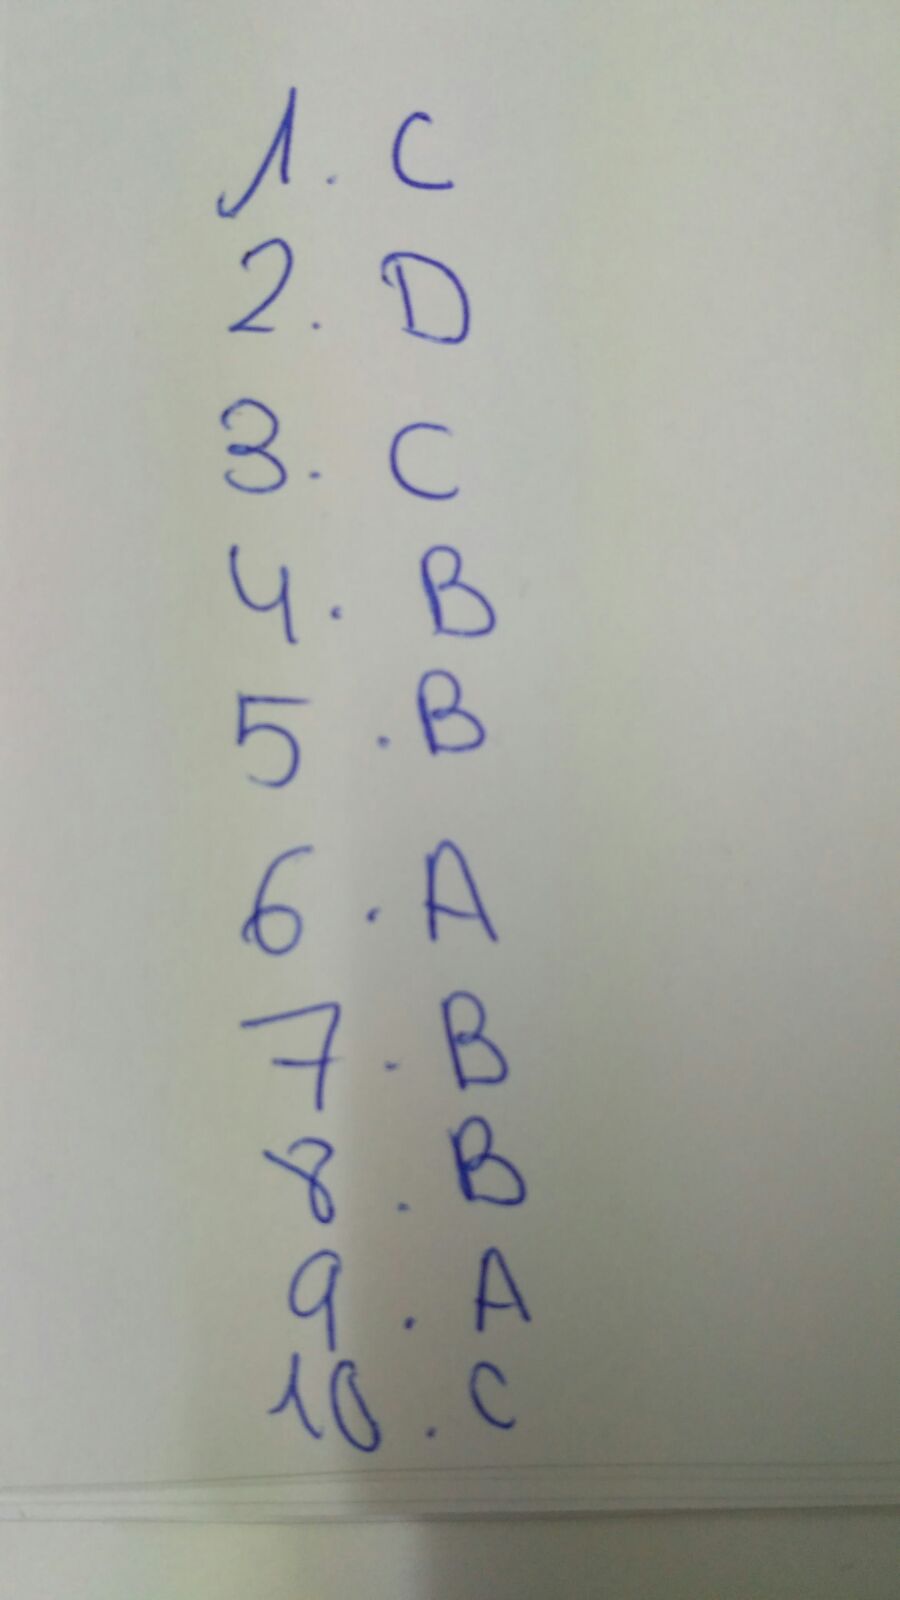 1. C
2. D
3. C
4. B
5. B
6. A
7. B
8. B
9. A
10. C